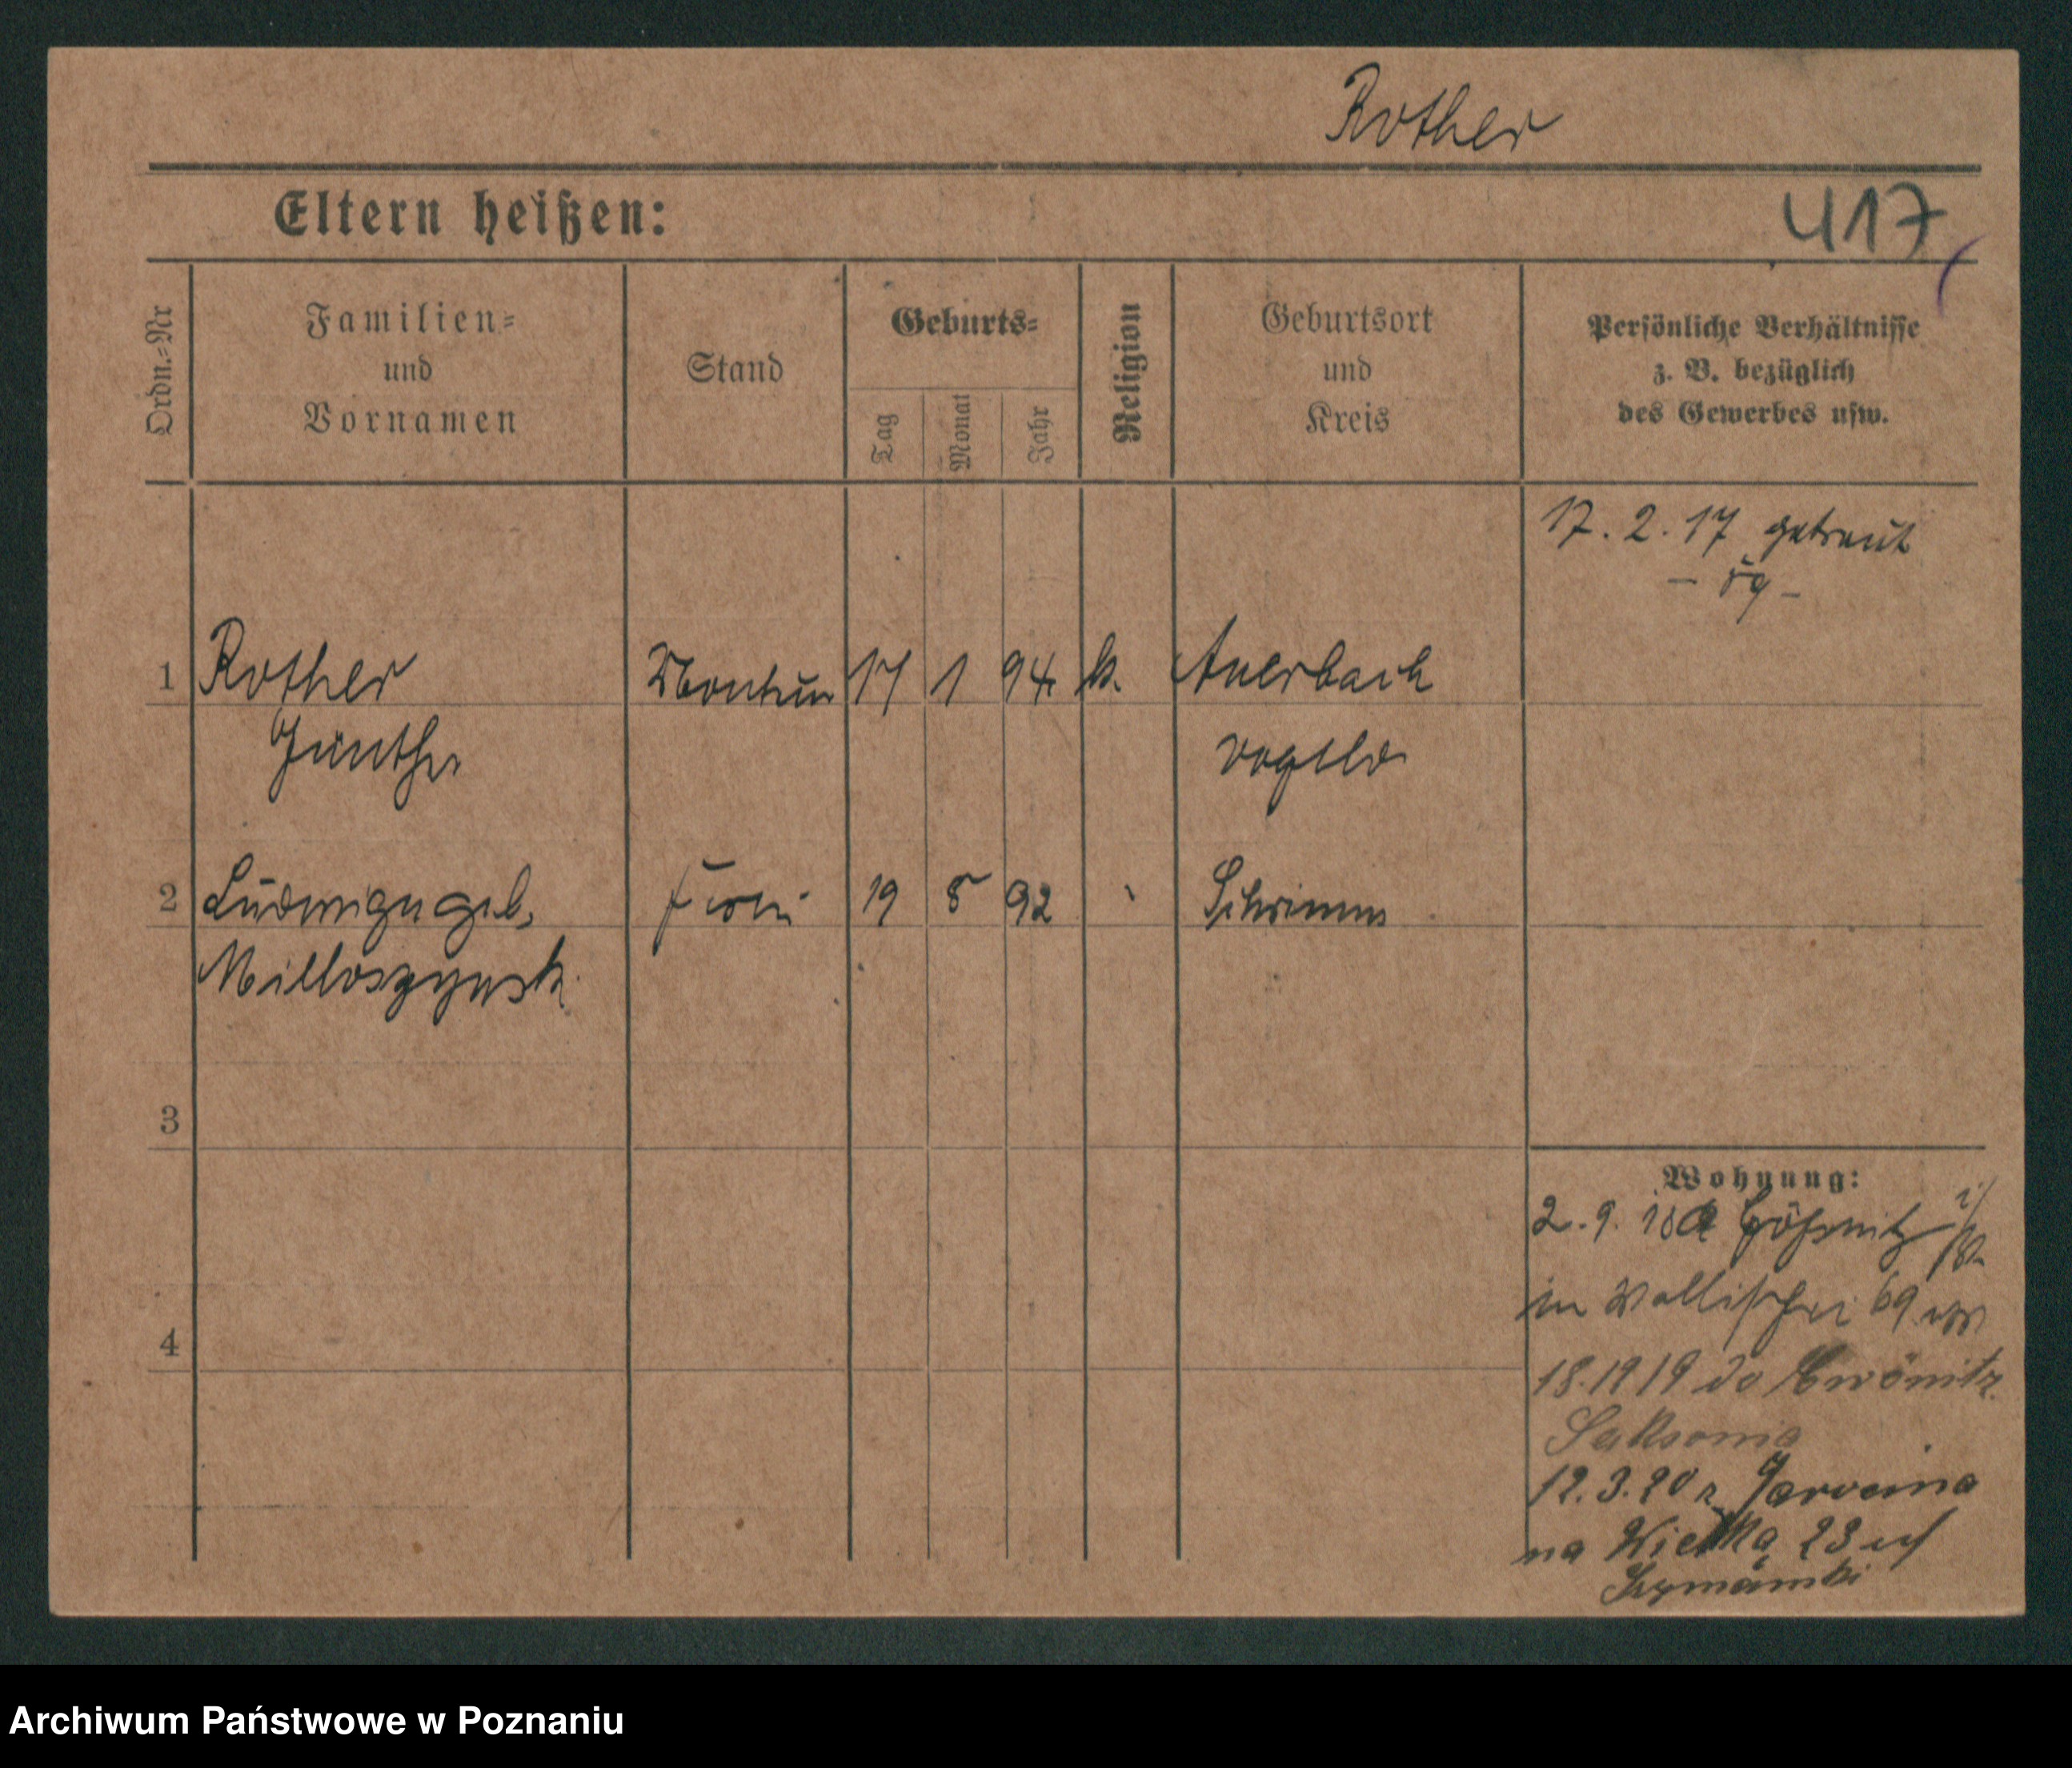 Rother
Eltern heißen:
417
Ordn.=Nr
Familien=
und
Vornamen
Stand
Geburts=
Tag
Monat
Jahr
Religion
Geburtsort
und
Kreis
Persönliche Verhältnisse
z. B. bezüglich
des Gewerbes usw.
17. 2. 17 getraut
1 Rother Monteur 17 1 94 k. Auerbach
Günther Vogtld
2 Ludwiga geb. 19 5 92 Schrimm
3
4
Wohnung:
2. 9. Gößnitz
in Wallischei 69
18. 1919 do
Saksonia
12.3.20 z Jarocina
na Wielką 23 u/
Szymański
Archiwum Państwowe w Poznaniu